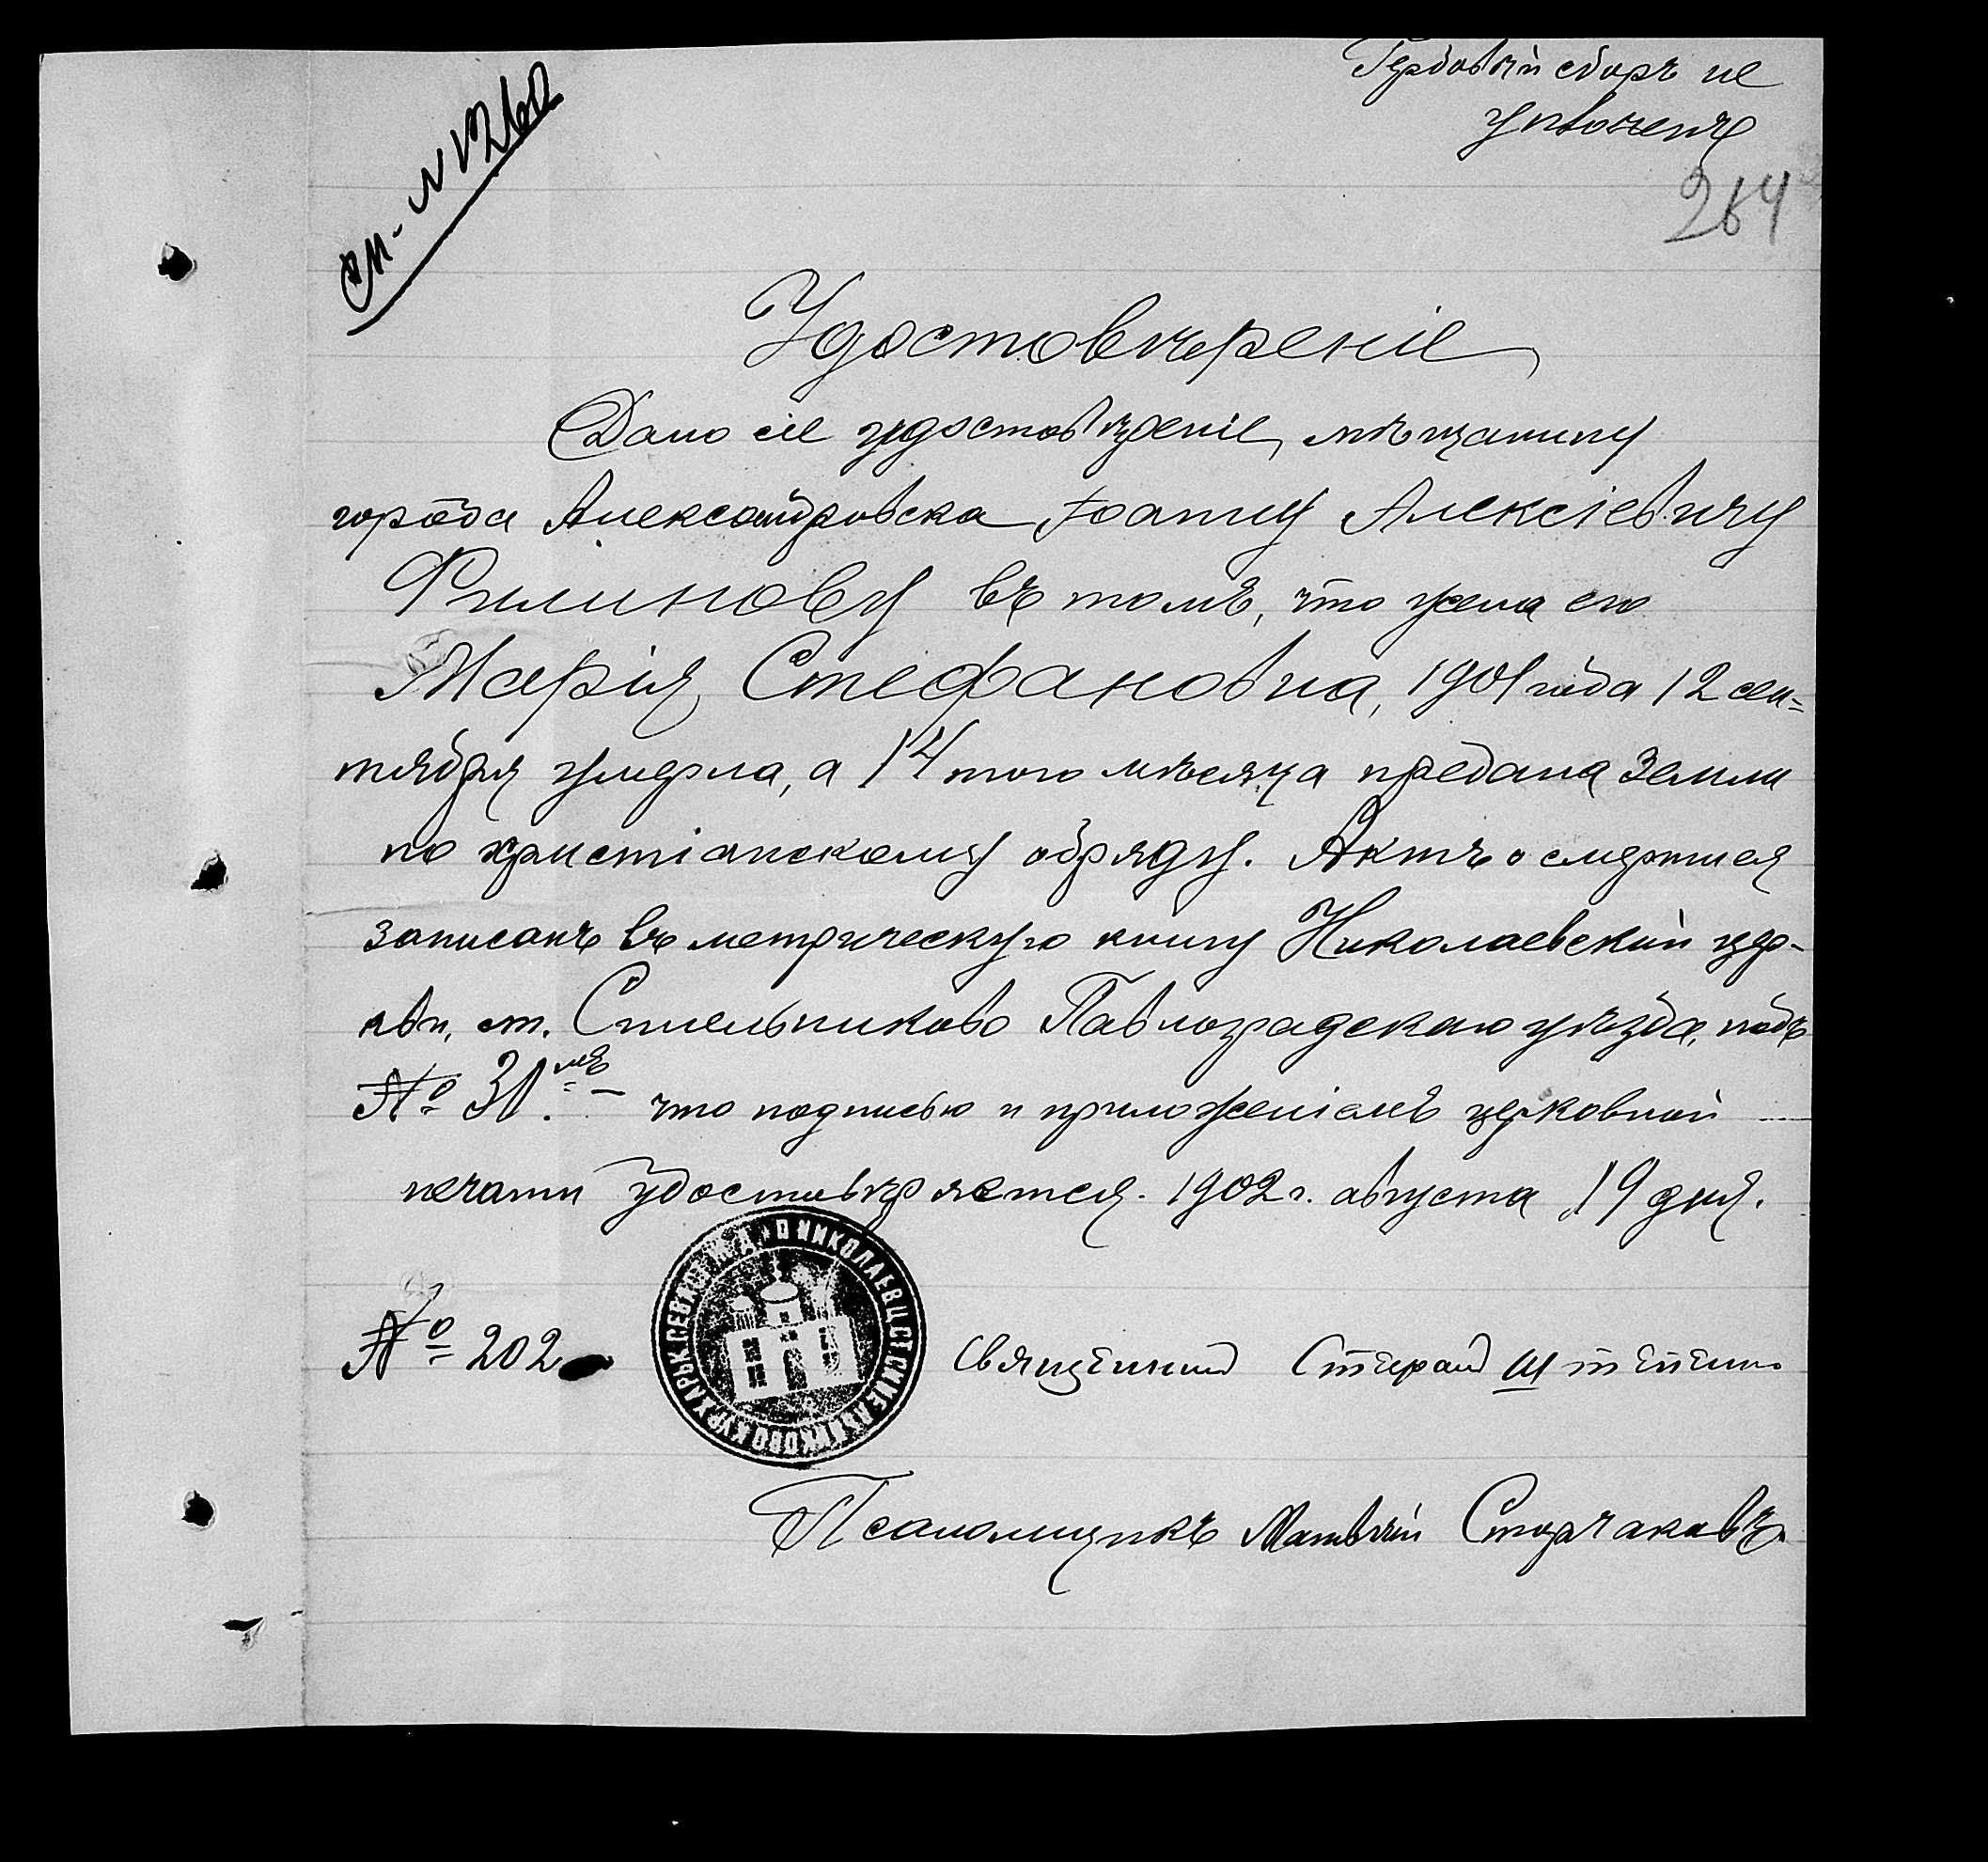 Гербовый сборъ не
уплоченъ
264
см. N 1260
Удостовѣреніе
Дано сіе удостовѣреніе, мѣщанину
города Александровска Іоанну Алексіевичу
Филинову въ томъ, что жена его
Марія Стефановна, 1901 года 12 сен=
тября умерла, а 14 того мѣсяца предана земли
по христіанскому обряду. Актъ о смерти ея
записанъ въ метрическую книгу Николаевской цер-
кви, ст. Синельниково Павлоградскаго уѣзда, подъ
№ 31.мъ – что подписью и приложеніемъ церковной
печати удостовѣряется. 1902 г. августа 19 дня.
№ 202
Священникъ
Псаломщикъ Матвѣй Сторчаковъ.